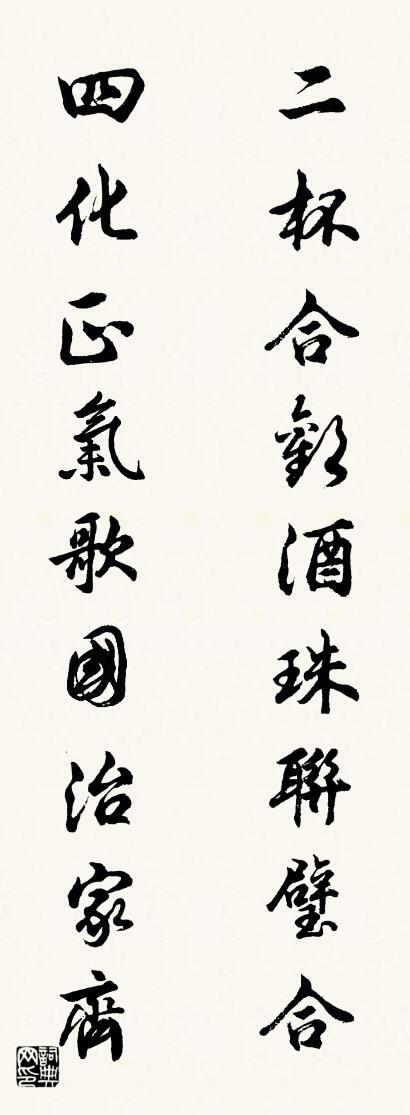 二杯合歡酒珠聯璧合
四化正氣歌國治家齊
詞典網印